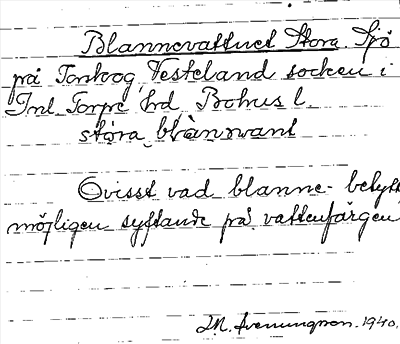 Blannevattnet Stora. Sjö
på Torskog Vesteland socken i
Inl. Torpe hrd Bohus l.
stóra blànnvant
Ovisst vad blanne- betytt
möjligen syftande på vattenfärgen
M. Evenungson. 1940.